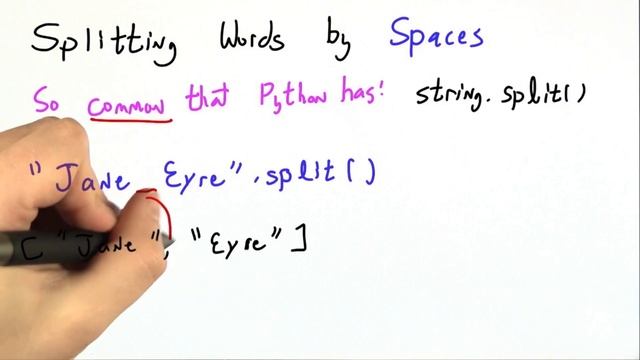 Splitting Words by Spaces
So common that Python has: string.split()
"Jane _ Eyre".split()
["Jane", "Eyre"]